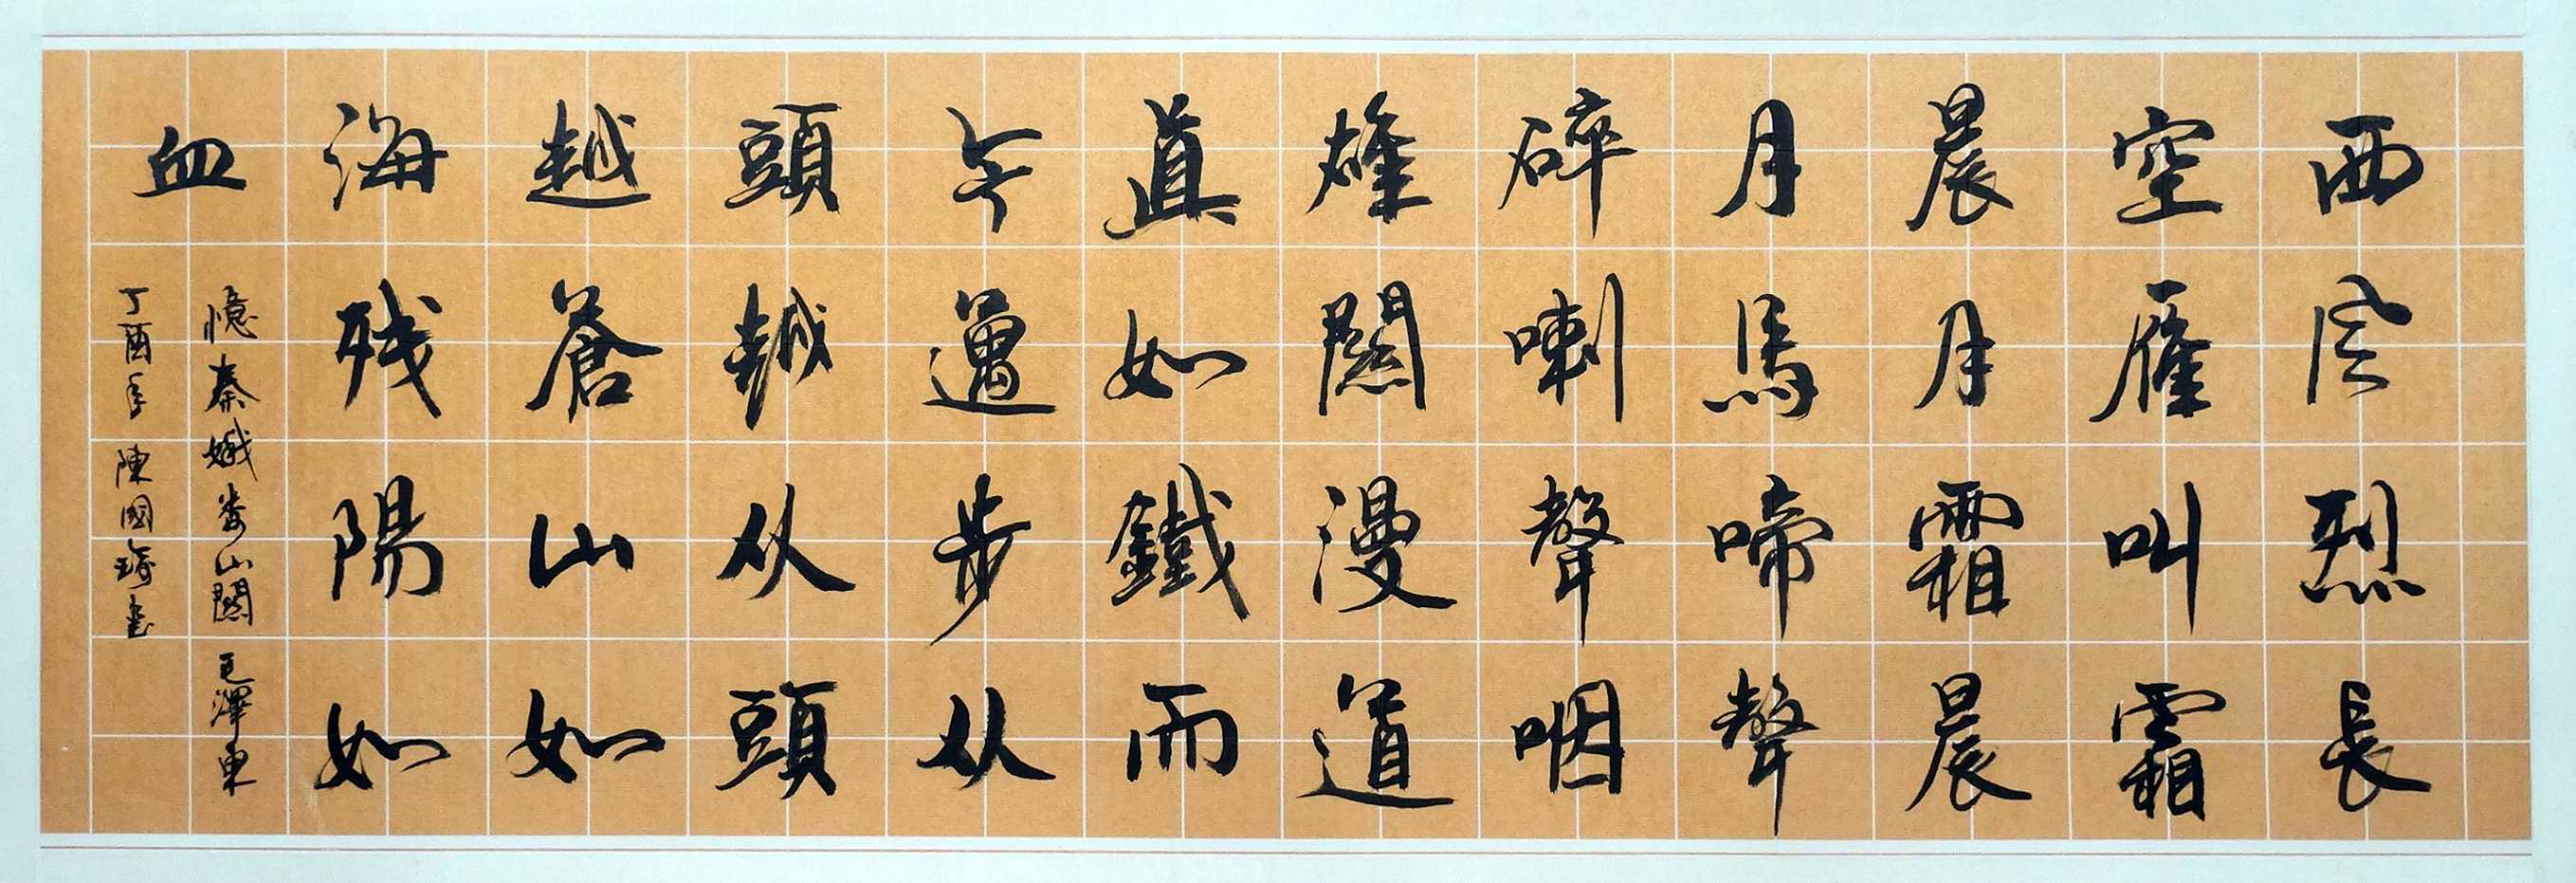 西風烈長
空雁叫霜
晨月霜晨
月馬啼聲
碎喇聲咽
雄關漫道
真如鐵而
今邁步从
頭越从頭
越蒼山如
海残陽如
血
憶秦娥婁山關 毛澤東
丁酉年 陳國書